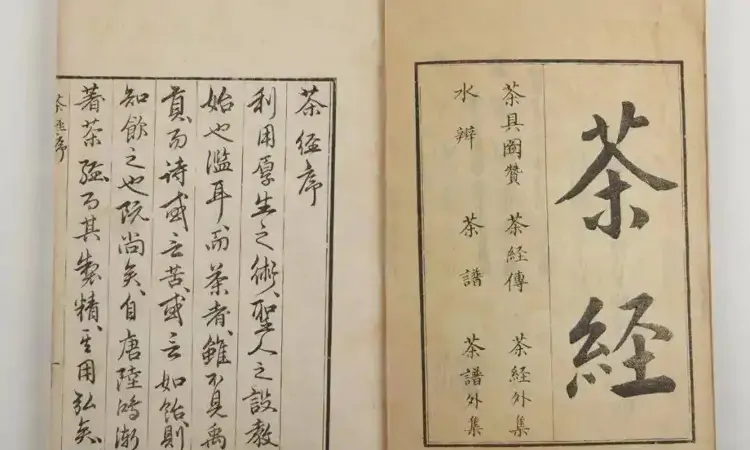 茶経
茶具圖贊 茶経傳 茶経外集
水辨 茶譜 茶譜外集
茶経序
利用厚生之術、聖人之設教
始也濫耳、而茶者、雖不見禹
貢、而詩或言苦、或言如飴、則
知飲之也既尚矣、自唐陸鴻漸
著茶経而其製精、其用弘矣
茶経序